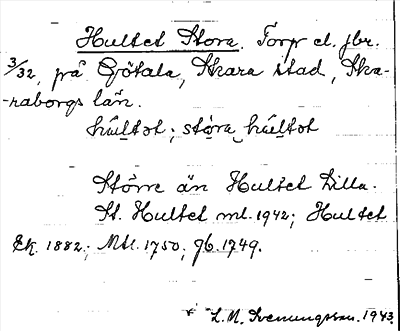 Hultet Stora. Torp el. jbr.
3/32, på Götala, Skara stad, Ska-
-raborgs län.
hultot; stora hultot
Större än Hultet Lilla.
St. Hultet ml. 1942; Hultet
Ek. 1882; Mtl. 1750; Jb. 1749.
L.M. Svenungsson. 1943.